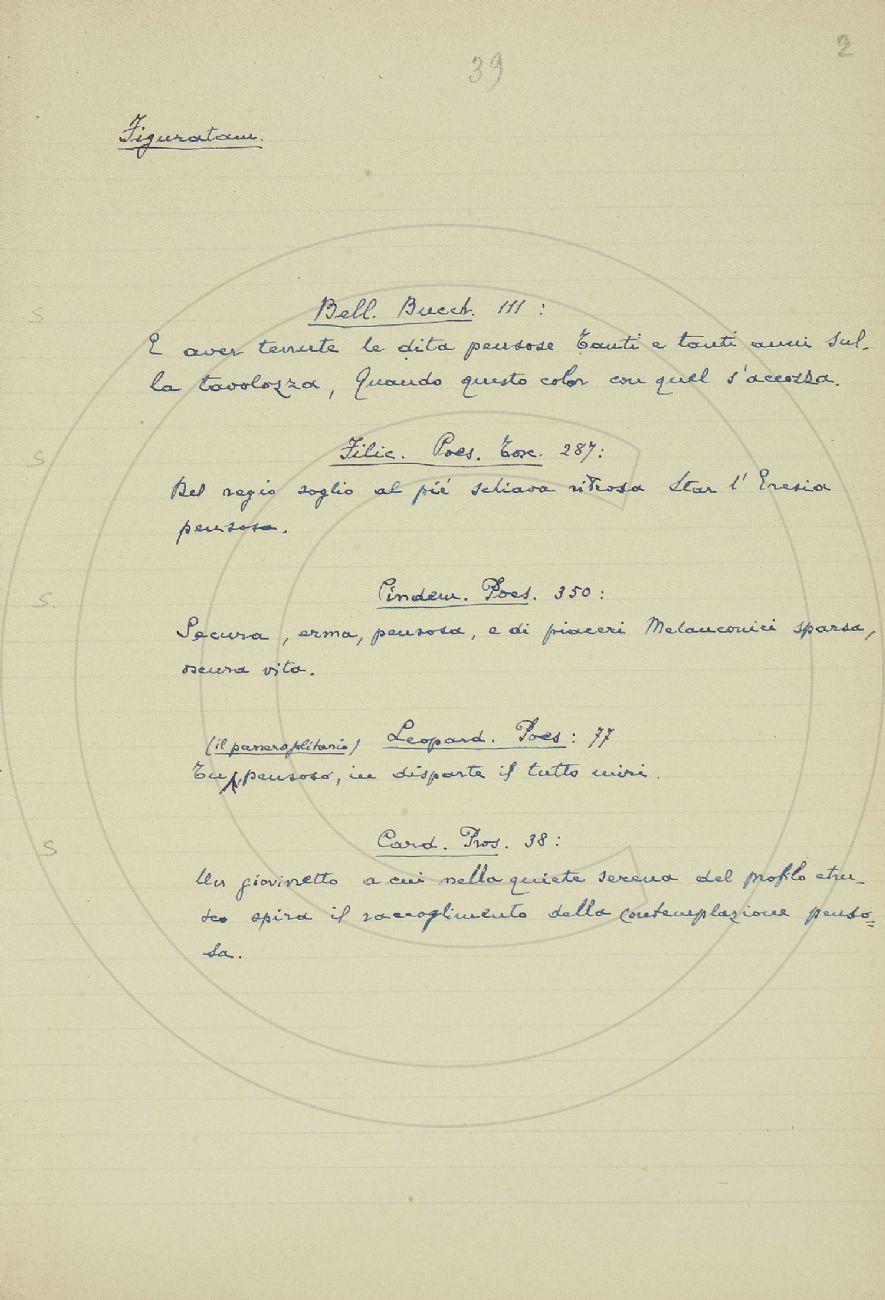 39
2
Figuratam.
S
Bell. Bucch. 111:
E aver tenute le dita pensose Tanti e tanti anni Sul-
la tavolozza, Quando questo color con quel s'accozza.
S
Filic. Poes. Tosc. 287:
Del regio soglio al pié schiava ritrosa Star l'Eresia
pensosa.
S.
Pindem. Poes. 350:
Secura, erma, pensosa, e di piaceri Melanconici sparsa,
oscura vita.
(il passero solitario) Leopard. Poes: 77
Tu, pensoso, in disparte il tutto miri.
S
Card. Pros. 38:
Un giovinetto a cui nella quiete serena del profilo etru-
sco spira il raccoglimento della contemplazione penso=
sa.